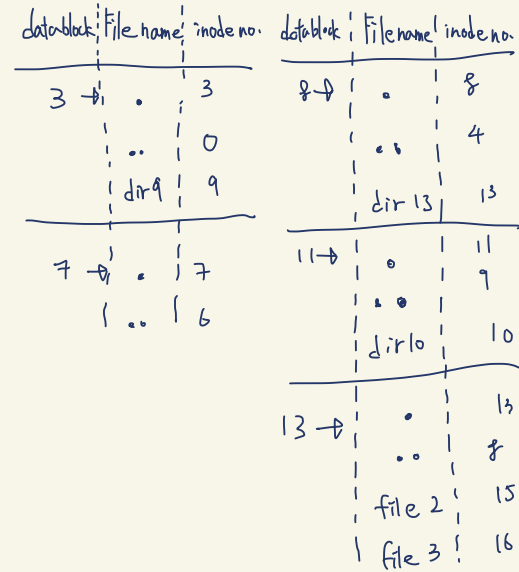 datablock File name inode no.
3 → . 3
.. 0
dir9 9
7 → . 7
.. 6
datablock Filename inode no.
8 → . 8
.. 4
dir 13 13
11 → . 11
.. 9
dir10 10
13 → . 13
.. 8
file 2 15
file 3 16